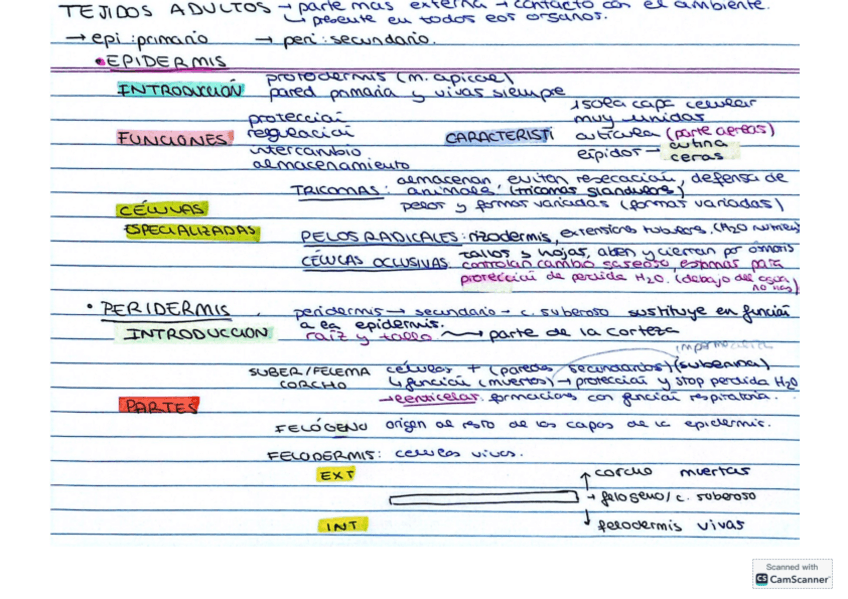 TEJIDOS ADULTOS → parte mas externa → contacto con el ambiente.
↳ presente en todos los organos.
→ epi : primario → peri : secundario.
• EPIDERMIS
INTRODUCCIÓN protodermis (m. apical)
pared primaria y vivas siempre
FUNCIONES protección
regulación
intercambio
almacenamiento
CARACTERISTI 1 sola capa celular
muy unidas
cutícula (parte aereas)
lípidos → cutina
ceras
CÉLULAS ESPECIALIZADAS
TRICOMAS: almacenan evitan resecación, defensa de
animales (tricomas glandulares)
pelos y formas variadas (formas variadas)
PELOS RADICALES: rizodermis, extensiones tubulares. (H2O nutrien)
CÉLULAS OCLUSIVAS. tallos y hojas, abren y cierran por osmosis
controlan cambio gaseoso, estomas para
protección de perdida H2O. (debajo del agua no hay)
• PERIDERMIS
INTRODUCCION peridermis → secundario → c. suberoso sustituye en función
a la epidermis.
raíz y tallo → parte de la corteza
PARTES
SUBER/FELEMA
CORCHO
células + (paredes secundarias) (suberina)
↳ función (muertos) → protección y stop perdida H2O
→ lenticelas. formaciones con función respiratoria.
FELÓGENO origen al resto de las capas de la epidermis.
FELODERMIS: celulas vivas.
EXT ↑ corcho muertas
→ felogeno/c. suberoso
INT ↓ felodermis vivas
Scanned with
CS CamScanner